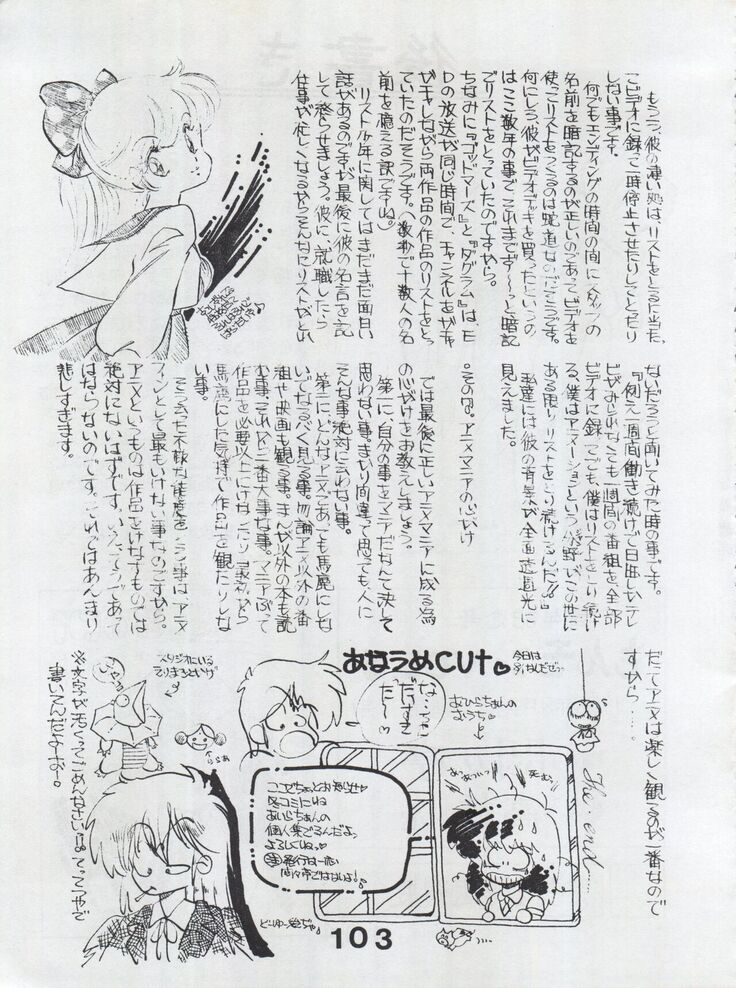 もう1つ、彼の凄い処は、リストをとるに当たってビデオに録って一時停止させたりしてとったり
しない事です。
何でもエンディングの時間の間にスタッフの
名前を暗記するのが正しいのであってビデオを
使ってリストをつくるのは邪道なのだそうです。
何にしろ、彼がビデオデッキを買ったというの
はここ数年の事で それまでずーっと暗記
でリストをとっていたのですから。
ちなみに『ゴッドマーズ』と『ダグラム』は、E
Dの放送が同じ時間で、チャンネルをガチャ
ガチャしながら両作品の作品のリストをとっ
ていたのだそうです。(数秒で十数人の名
前を憶える訳ですね)
リスト少年に関してはまだまだ面白い
話があるのですが最後に彼の名言を記
して終らせましょう。彼に、就職したら
仕事が忙しくなるからそんなにリストがとれ
ないだろうと聞いてみた時の事です。
『例え一週間働き続けて日曜しかテレ
ビがみられなくても一週間の番組を全部
ビデオに録ってでも、僕はリストをとり続け
る。僕はアニメーションという分野がこの世に
ある限りリストをとり続けるんだ!!』
私達には彼の背景が全面透過光に
見えました。
○その四。アニメマニアの心がけ
では最後に正しいアニメマニアに成る為
の心がけをお教えしましょう。
第一に、自分の事をマニアだなんて決して
思わない事。まかり間違って思っても人に
そんな事絶対に言わない事。
第二に、どんなアニメであっても馬鹿にしな
いでなるべく見る事。勿論アニメ以外の番
組や映画も観る事。まんが以外の本も読
む事。それに一番大事な事。マニアぶって
作品を必要以上にけなしたり最初から
馬鹿にした気持で作品を観たりしな
い事。
そういった不様な態度をとる事は アニメ
ファンとして最もいけない事なのですから。
アニメというものは作品をけなすものでは
絶対にないはずです。いえ、そうであって
はならないのです。それではあんまり
悲しすぎます。
だってアニメは楽しく観るのが一番なので
すから……
The end....
あなうめCUt♥
今日は
おいらちゃんの
おうち♥
な…なんて
だいすき
だ〜♡
あっあついっ
死む〜
ここでちょっとお知らせ♥
冬コミにね
あいらちゃんの
個人集でるんだよっ
よろしくねっ♥
どーゆー絵ぢゃ
スタジオにいる
※文字が汚くってごめんなさいね。てってつやで
書いてんだよーおー。
103